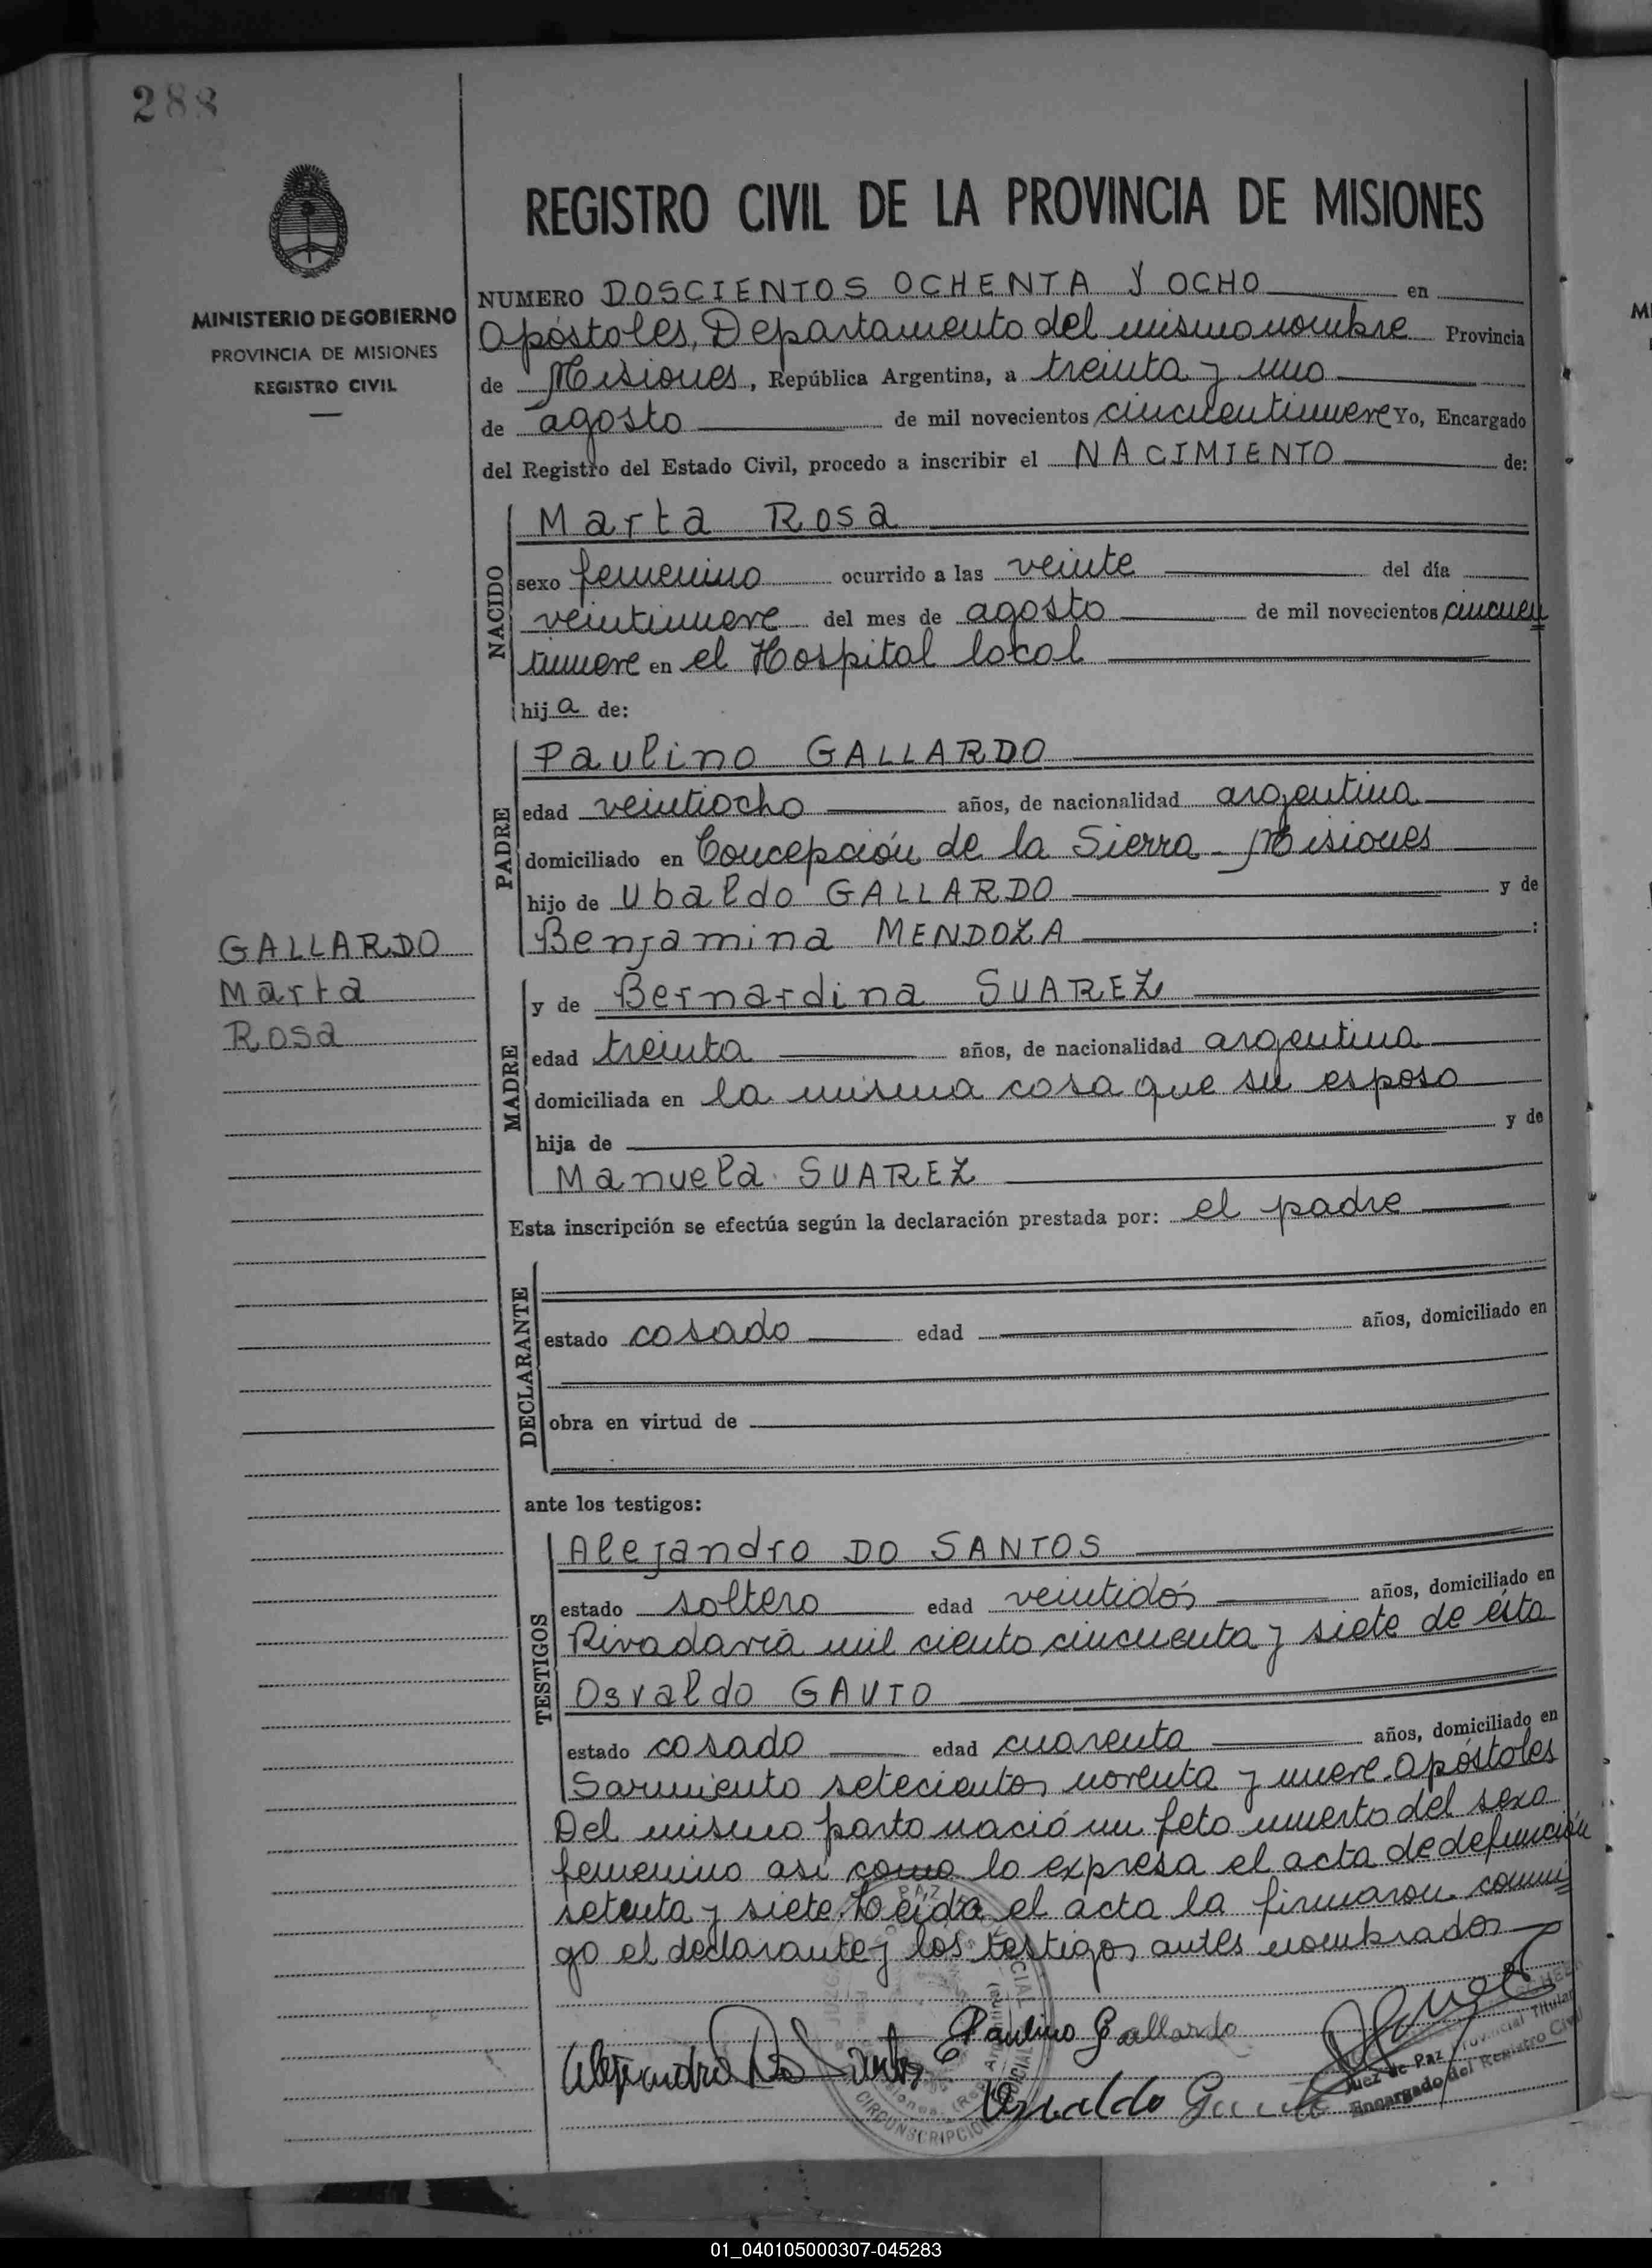 288
MINISTERIO DE GOBIERNO
PROVINCIA DE MISIONES
REGISTRO CIVIL
GALLARDO
Marta
Rosa
REGISTRO CIVIL DE LA PROVINCIA DE MISIONES
NUMERO DOSCIENTOS OCHENTA Y OCHO en
Apóstoles, Departamento del mismo nombre Provincia
de Misiones, República Argentina, a treinta y uno
de agosto de mil novecientos cincuentinueve Yo, Encargado
del Registro del Estado Civil, procedo a inscribir el NACIMIENTO de:
NACIDO
Marta Rosa
sexo femenino ocurrido a las veinte del día
veintinueve del mes de agosto de mil novecientos cincuen
tinueve en el Hospital local
hija de:
PADRE
Paulino GALLARDO
edad veintiocho años, de nacionalidad argentina
domiciliado en Concepción de la Sierra - Misiones
hijo de Ubaldo GALLARDO y de
Benjamina MENDOZA :
MADRE
y de Bernardina SUAREZ
edad treinta años, de nacionalidad argentina
domiciliada en la misma casa que su esposo
hija de y de
Manuela SUAREZ
Esta inscripción se efectúa según la declaración prestada por: el padre
DECLARANTE
estado casado edad años, domiciliado en
obra en virtud de
ante los testigos:
TESTIGOS
Alejandro DO SANTOS
estado soltero edad veintidós años, domiciliado en
Rivadavia mil ciento cincuenta y siete de ésta
Osvaldo GAUTO
estado casado edad cuarenta años, domiciliado en
Sarmiento setecientos noventa y nueve. Apóstoles
Del mismo parto nació un feto muerto del sexo
femenino así como lo expresa el acta de defunción
setenta y siete. Leída el acta la firmaron conmi
go el declarante y los testigos antes nombrados
Alejandro Do Santos
Paulino Gallardo
Osvaldo Gauto
Juez de Paz Provincial Titular
Encargado del Registro Civil
CIRCUNSCRIPCION JUDICIAL
01_040105000307-045283